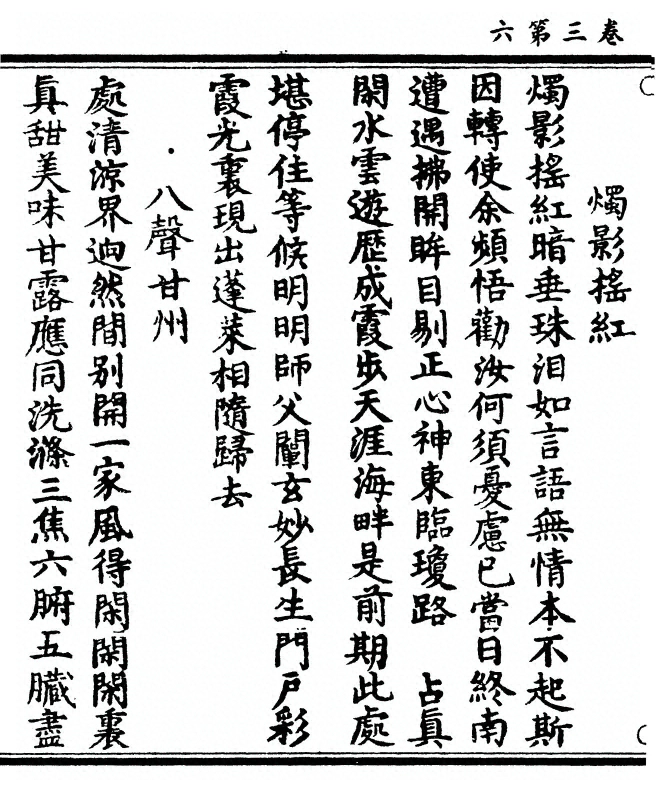 卷三第六
燭影搖紅
燭影搖紅暗垂珠泪如言語無情本不起斯
因轉使余頻悟勸汝何須憂慮巳當日終南
遭遇拂開眸目剔正心神東臨瓊路　占眞
閑水雲遊歷成霞步天涯海畔是前期此處
堪停住等候明明師父闡玄妙長生門戶彩
霞光裏現出蓬萊相隨歸去
八聲甘州
處清涼界逈然間別開一家風得閑閑閑裏
眞甜美味甘露應同洗滌三焦六腑五臟盡